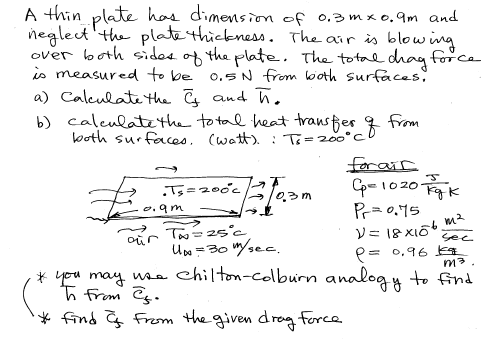 A thin plate has dimension of 0.3 m x 0.9m and
neglect the plate thickness. The air is blowing
over both sides of the plate. The total drag force
is measured to be 0.5 N from both surfaces.
a) Calculate the C̄f and h̄.
b) calculate the total heat transfer q from
both surfaces. (watt). : Ts = 200°C
for air
Cp = 1020 J/kg K
Pr = 0.75
ν = 18 x10⁻⁶ m²/sec
ρ = 0.96 kg/m³
.Ts = 200°C
0.9m
0.3 m
air T∞ = 25°C
U∞ = 30 m/sec.
* you may use Chilton-Colburn analogy to find
h̄ from C̄f.
* find C̄f from the given drag force